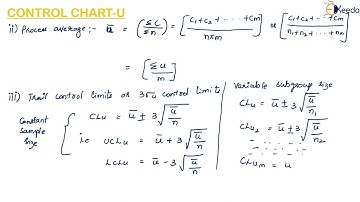 CONTROL CHART-U
Ekeeda
ii) Process average :- ū = (Σc / Σn) = [C₁ + C₂ + ---- + Cm / n×m] or [C₁ + C₂ + --- + Cm / n₁ + n₂ + --- + nm]
= [Σu / m]
iii) Trail control limits or 3σu control limits
Constant sample size { CLu = ū ± 3 √(ū/n)
i.e UCLu = ū + 3 √(ū/n)
LCLu = ū - 3 √(ū/n)
Variable subgroup size
CLu₁ = ū ± 3 √(ū/n₁)
CLu₂ = ū ± 3 √(ū/n₂)
CLum = u